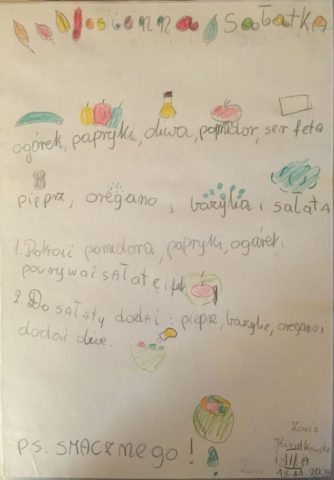 Jesienna Sałatka
ogórek, papryki, oliwa, pomidor, ser feta
pieprz, oregano, bazylia i sałata
1. Pokroić pomidora, papryki, ogórek i
pourywać sałatę i
2. Do sałaty dodać: pieprz, bazylię, oregano i
dodać oliwę.
P.S. SMACZNEGO!
Zosia
III A